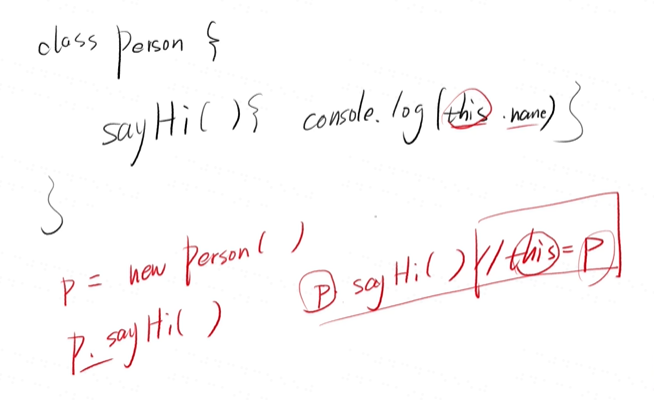 class Person {
sayHi(){ console.log(this.name) }
}
p = new Person()
p.sayHi()
p sayHi() // this = p